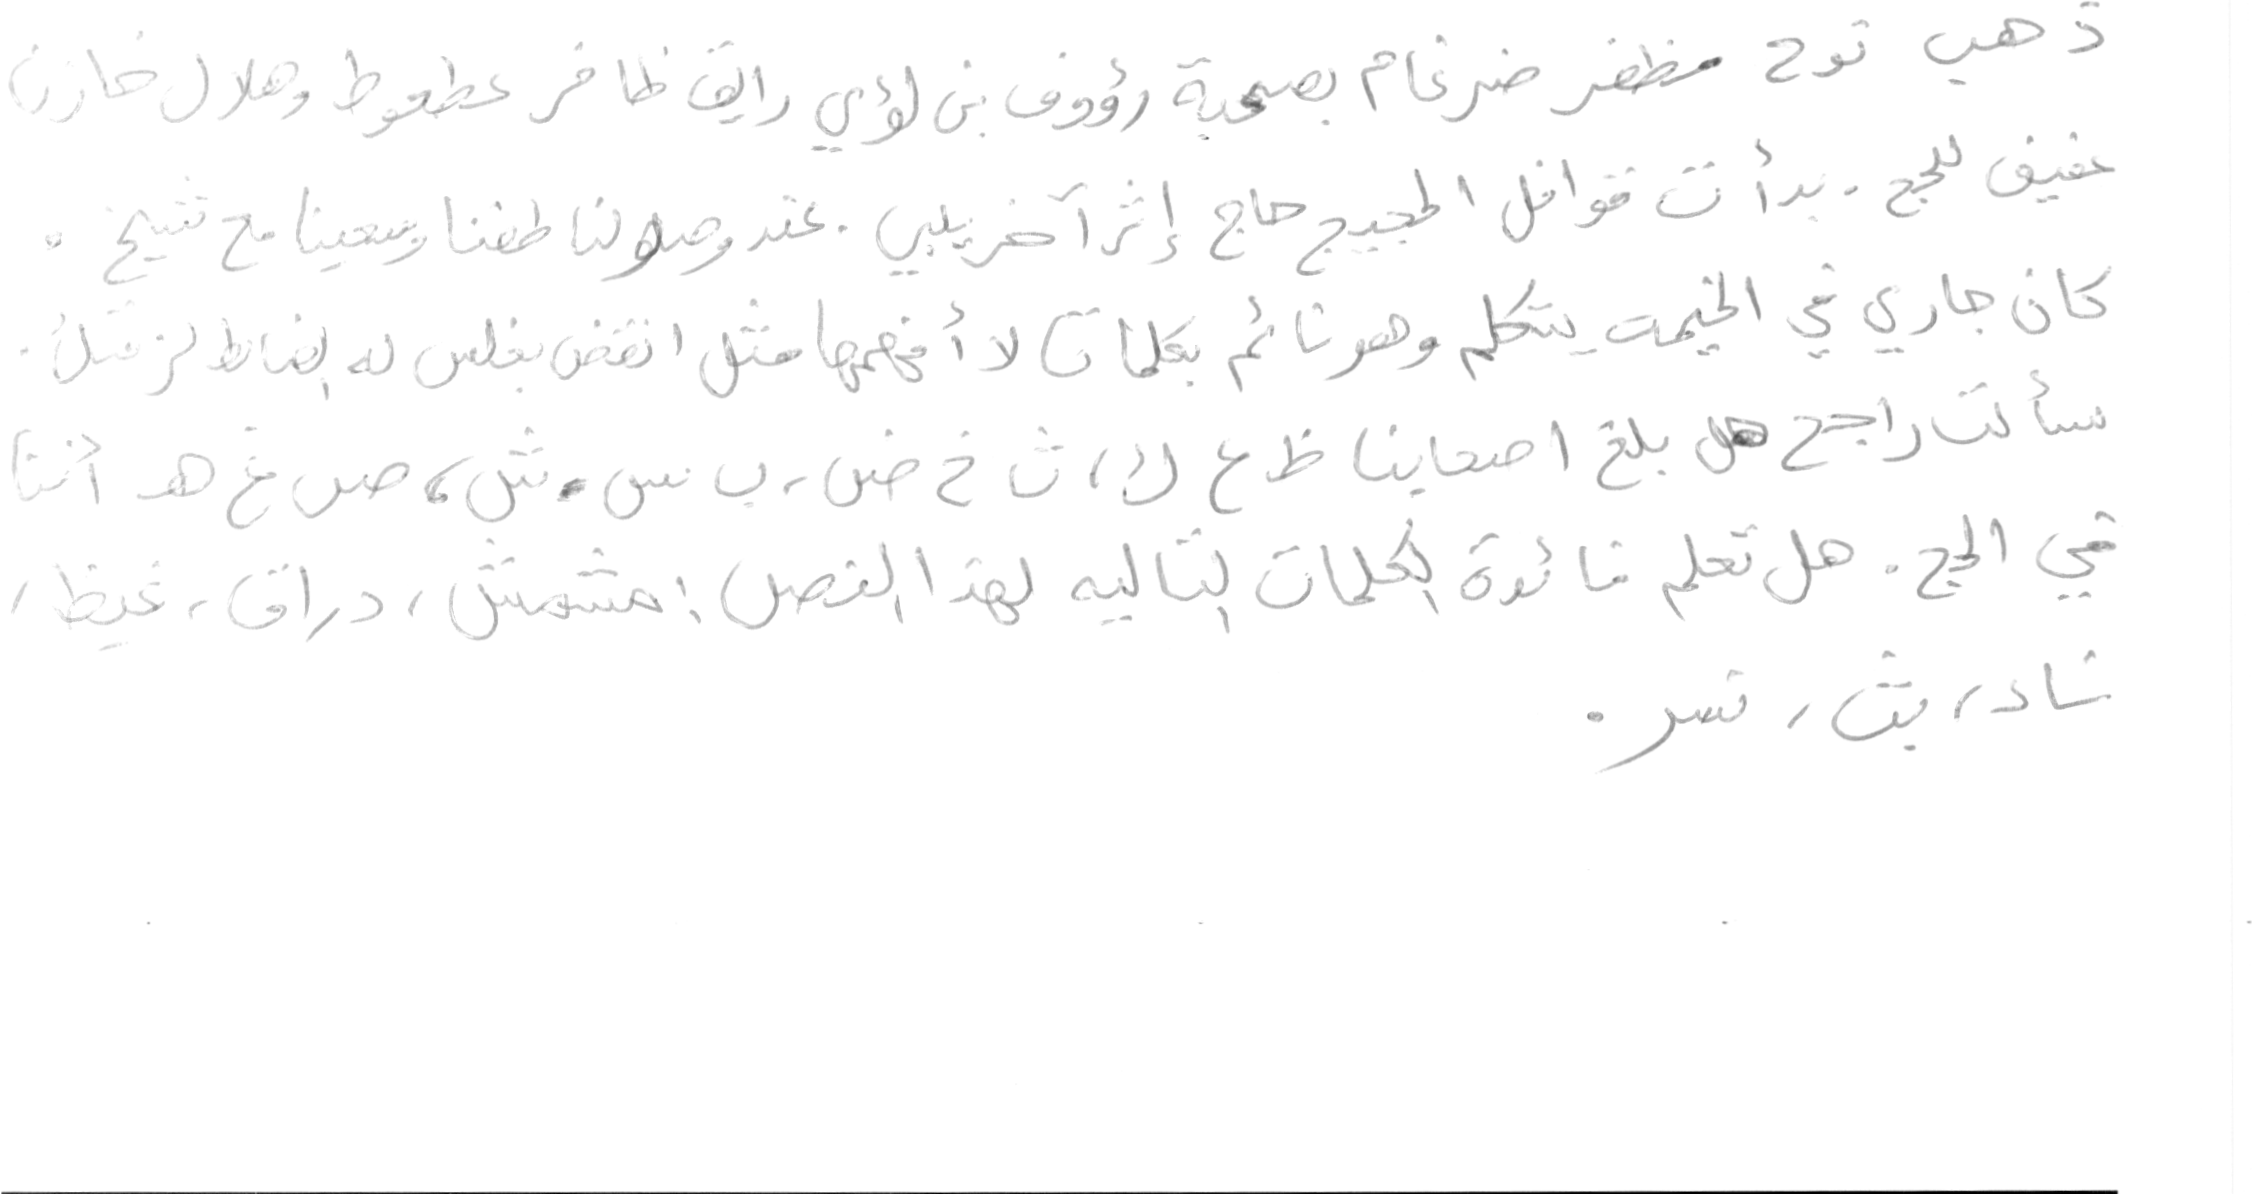 ذهب نوح مظفر ضرغام بصحبة رؤوف بن لؤي رايق ظافر عطعوط وهلال خازن
عفيف للحج . بدأت قوافل الحجيج حاج إثر آخر يلبي . عند وصولنا طفنا وسعينا مع شيخ .
كان جاري في الخيمة يتكلم وهو نائم بكلمات لا أفهمها مثل انقض بغلس له إلضاظ لز شك .
سألت راجح هل بلغ اصحابنا ظ ع ك ، ث خ ض ، ب س ، ش ، ص غ هـ أننا
في الحج . هل تعلم فائدة الكلمات التاليه لهذا الفصل : مشمش ، دراق ، غيظ ،
شاد ، بث ، نسر .